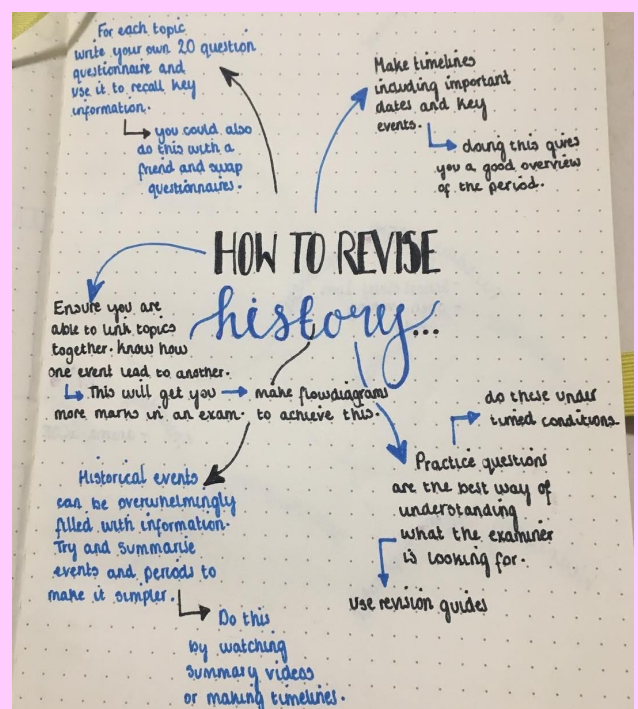 For each topic
write your own 20 question
questionnaire and
use it to recall key
information.
you could also
do this with a
friend and swap
questionnaires.
Make timelines
including important
dates and key
events.
doing this gives
you a good overview
of the period.
HOW TO REVISE
history...
Ensure you are
able to link topics
together. Know how
one event lead to another.
This will get you
more marks in an exam.
make flowdiagrams
to achieve this.
do these under
timed conditions.
Practice questions
are the best way of
understanding
what the examiner
is looking for.
Use revision guides
Historical events
can be overwhelmingly
filled with information.
Try and summarise
events and periods to
make it simpler.
Do this
by watching
summary videos
or making timelines.